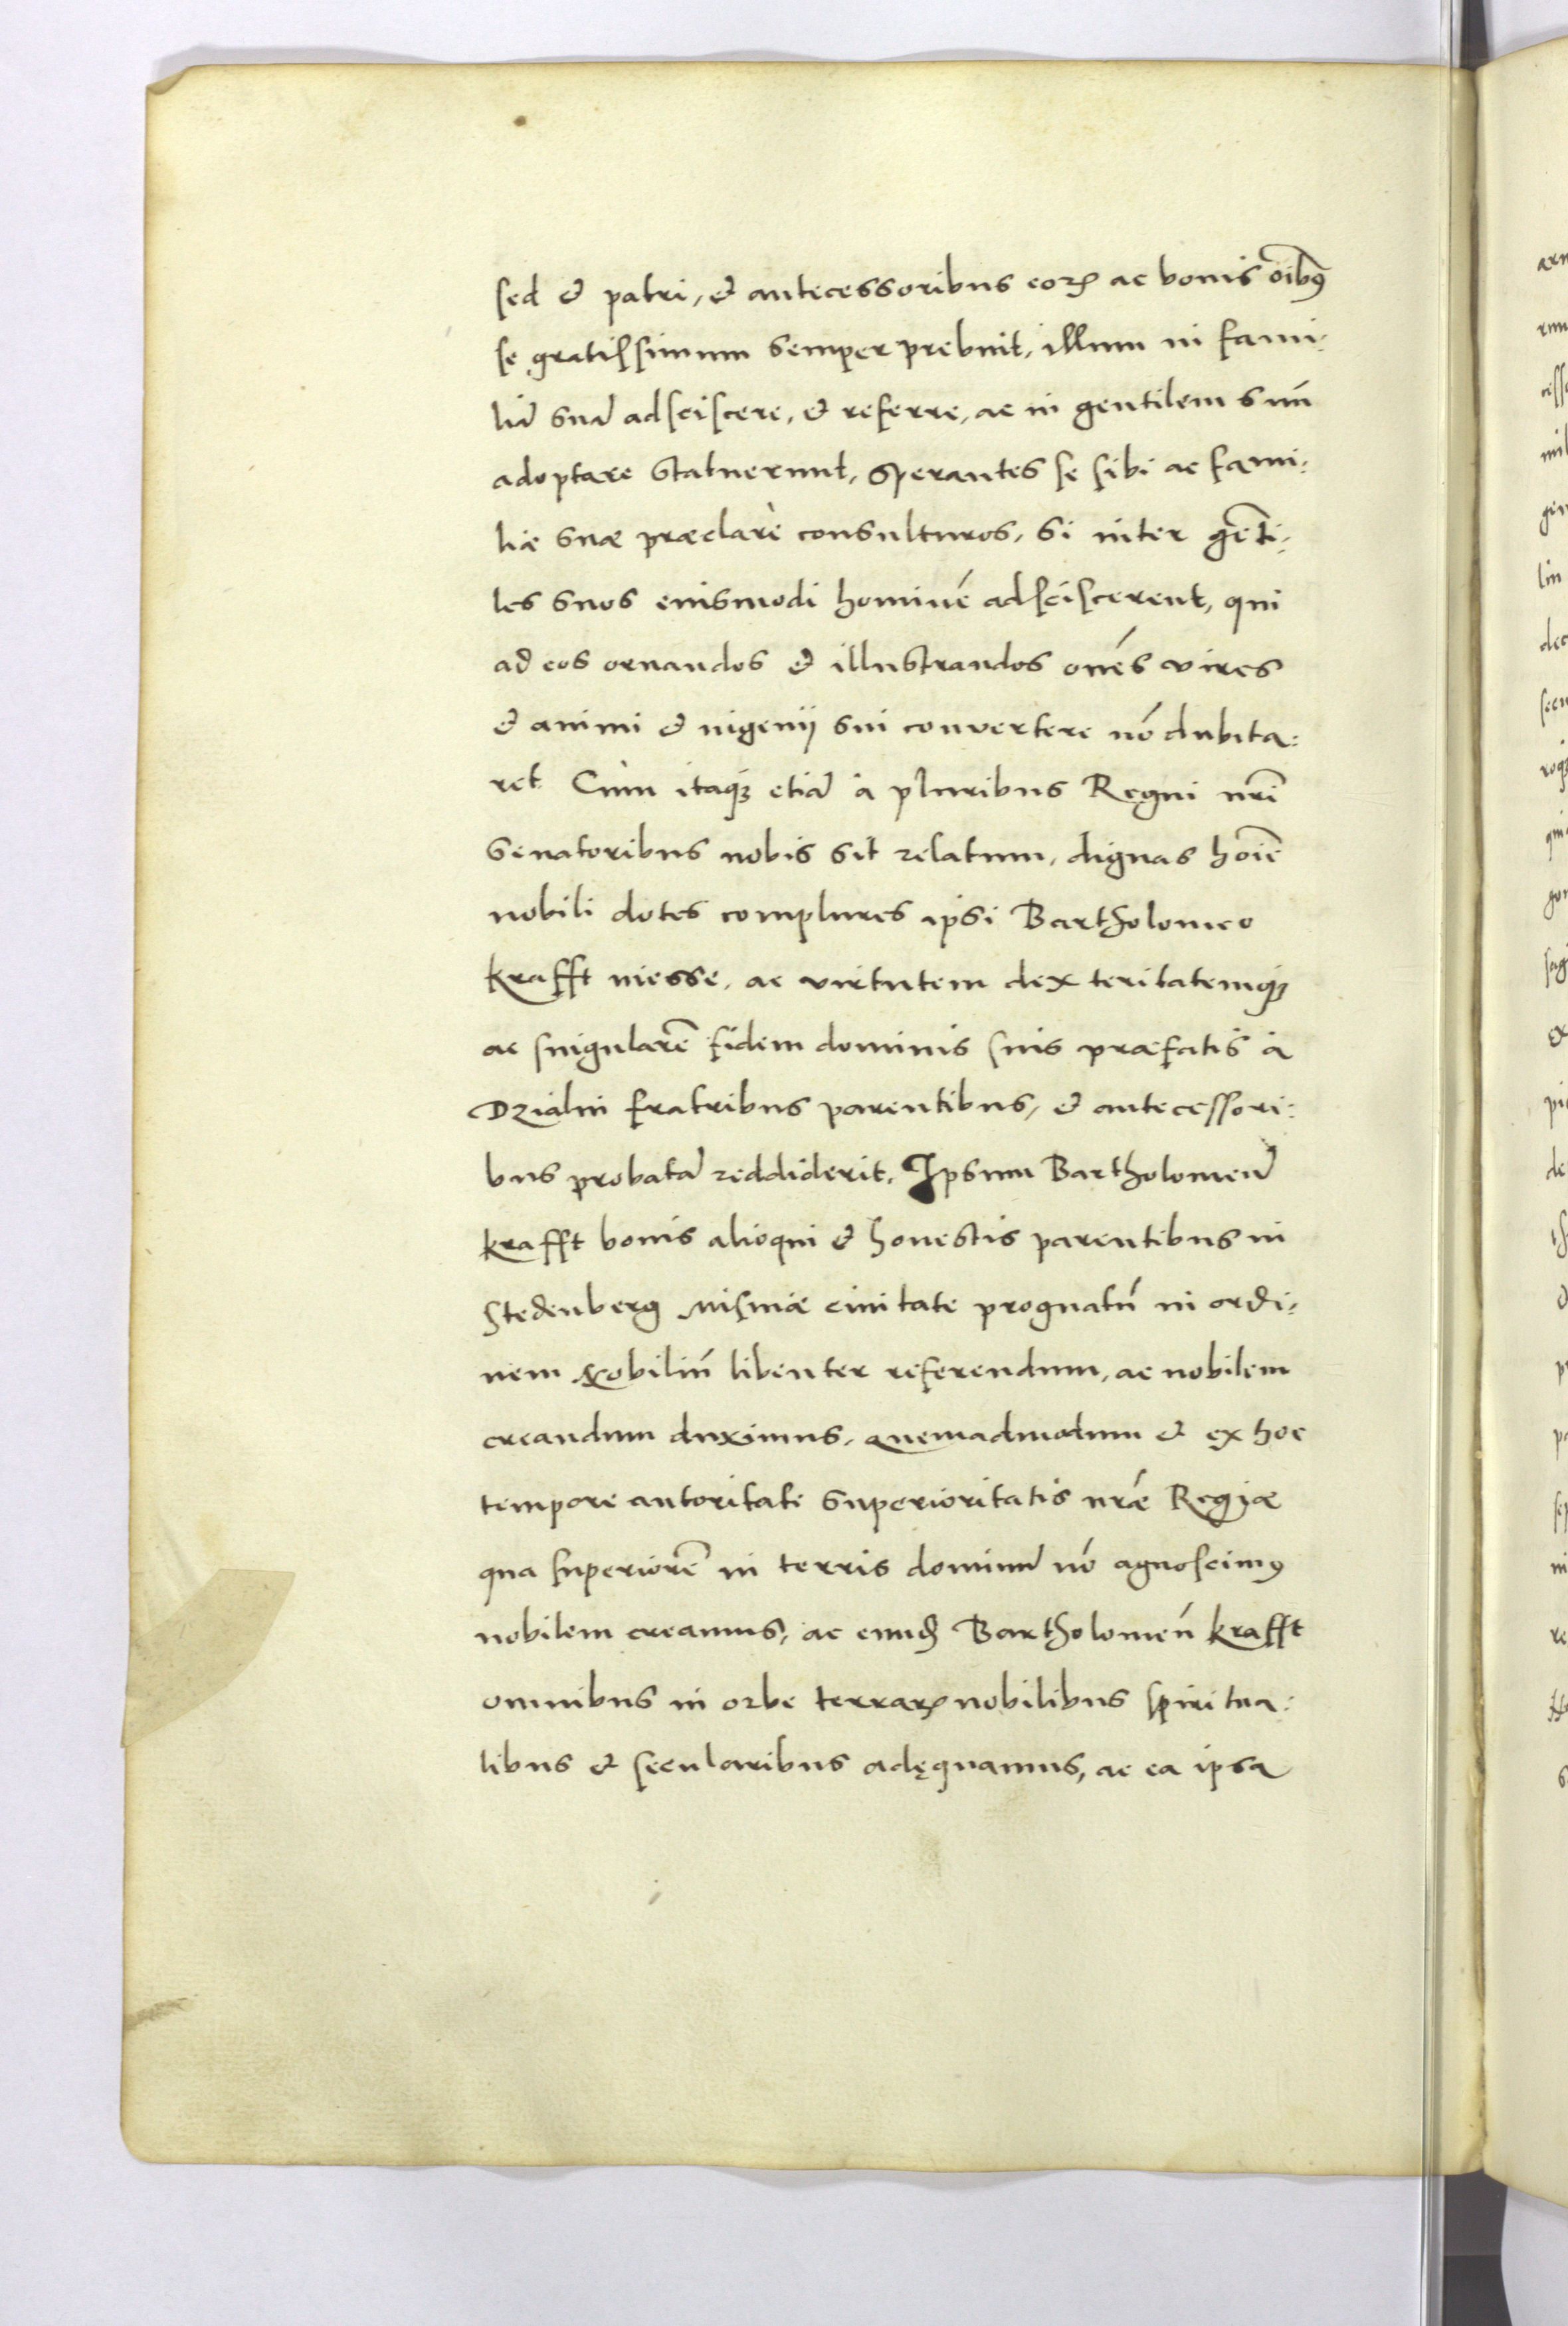 sed & patri, & antecessoribus eoꝝ ac bonis oi͞bꝯ
se gratissimum semper prebuit, illum in fami:
liã suã adsciscere, & referre, ac in gentilem suũ
adoptare statuerunt, sperantes se sibi ac fami:
liæ suæ præclarè consulturos, si inter gẽti:
les suos eiusmodi hominẽ adsciscerent, qui
ad eos ornandos & illustrandos oñes vires
& animi & ingenij sui convertere nõ dubita:
ret Cùm itaqꝫ etiã à pluribus Regni nr̃i
Senatoribus nobis sit relatum, dignas hoĩe
nobili dotes complures ipsi Bartholomeo
Krafft inesse, ac virtutem dexteritatemqꝫ
ac singularẽ fidem dominis suis præfatis à
Dzialin fratribus parentibus, & antecessori:
bus probatã reddiderit, Ipsum Bartholomeũ
Krafft bonis alioqui & honestis parentibus in
Stedenberg Misniæ civitate prognatũ in ordi:
nem Nobiliũ libenter referendum, ac nobilem
creandum duximus, quemadmodum & ex hoc
tempore autoritate superioritatis nr̃æ Regiæ
qua superiorẽ in terris dominũ nõ agnoscimꝯ
nobilem creamus, ac eund̃ Bartholomeũ Krafft
omnibus in orbe terraꝝ nobilibus spiritua:
libus & secularibus adęquamus, ac ea ipsa